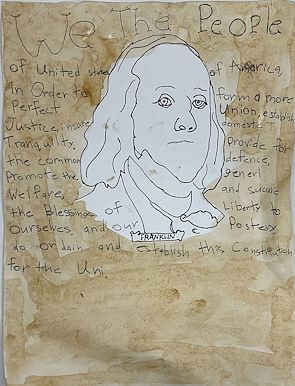 We The People
of United states of America,
In Order to form a more
Perfect Union, establish
Justice, insure domestic
Tranquility, Provide for
the common defence,
Promote the generl
Welfare, and sucure
the Blessings of Liberty to
Ourselves and our Postery
do ordain and establish this Constitution
for the Uni
FRANKLIN